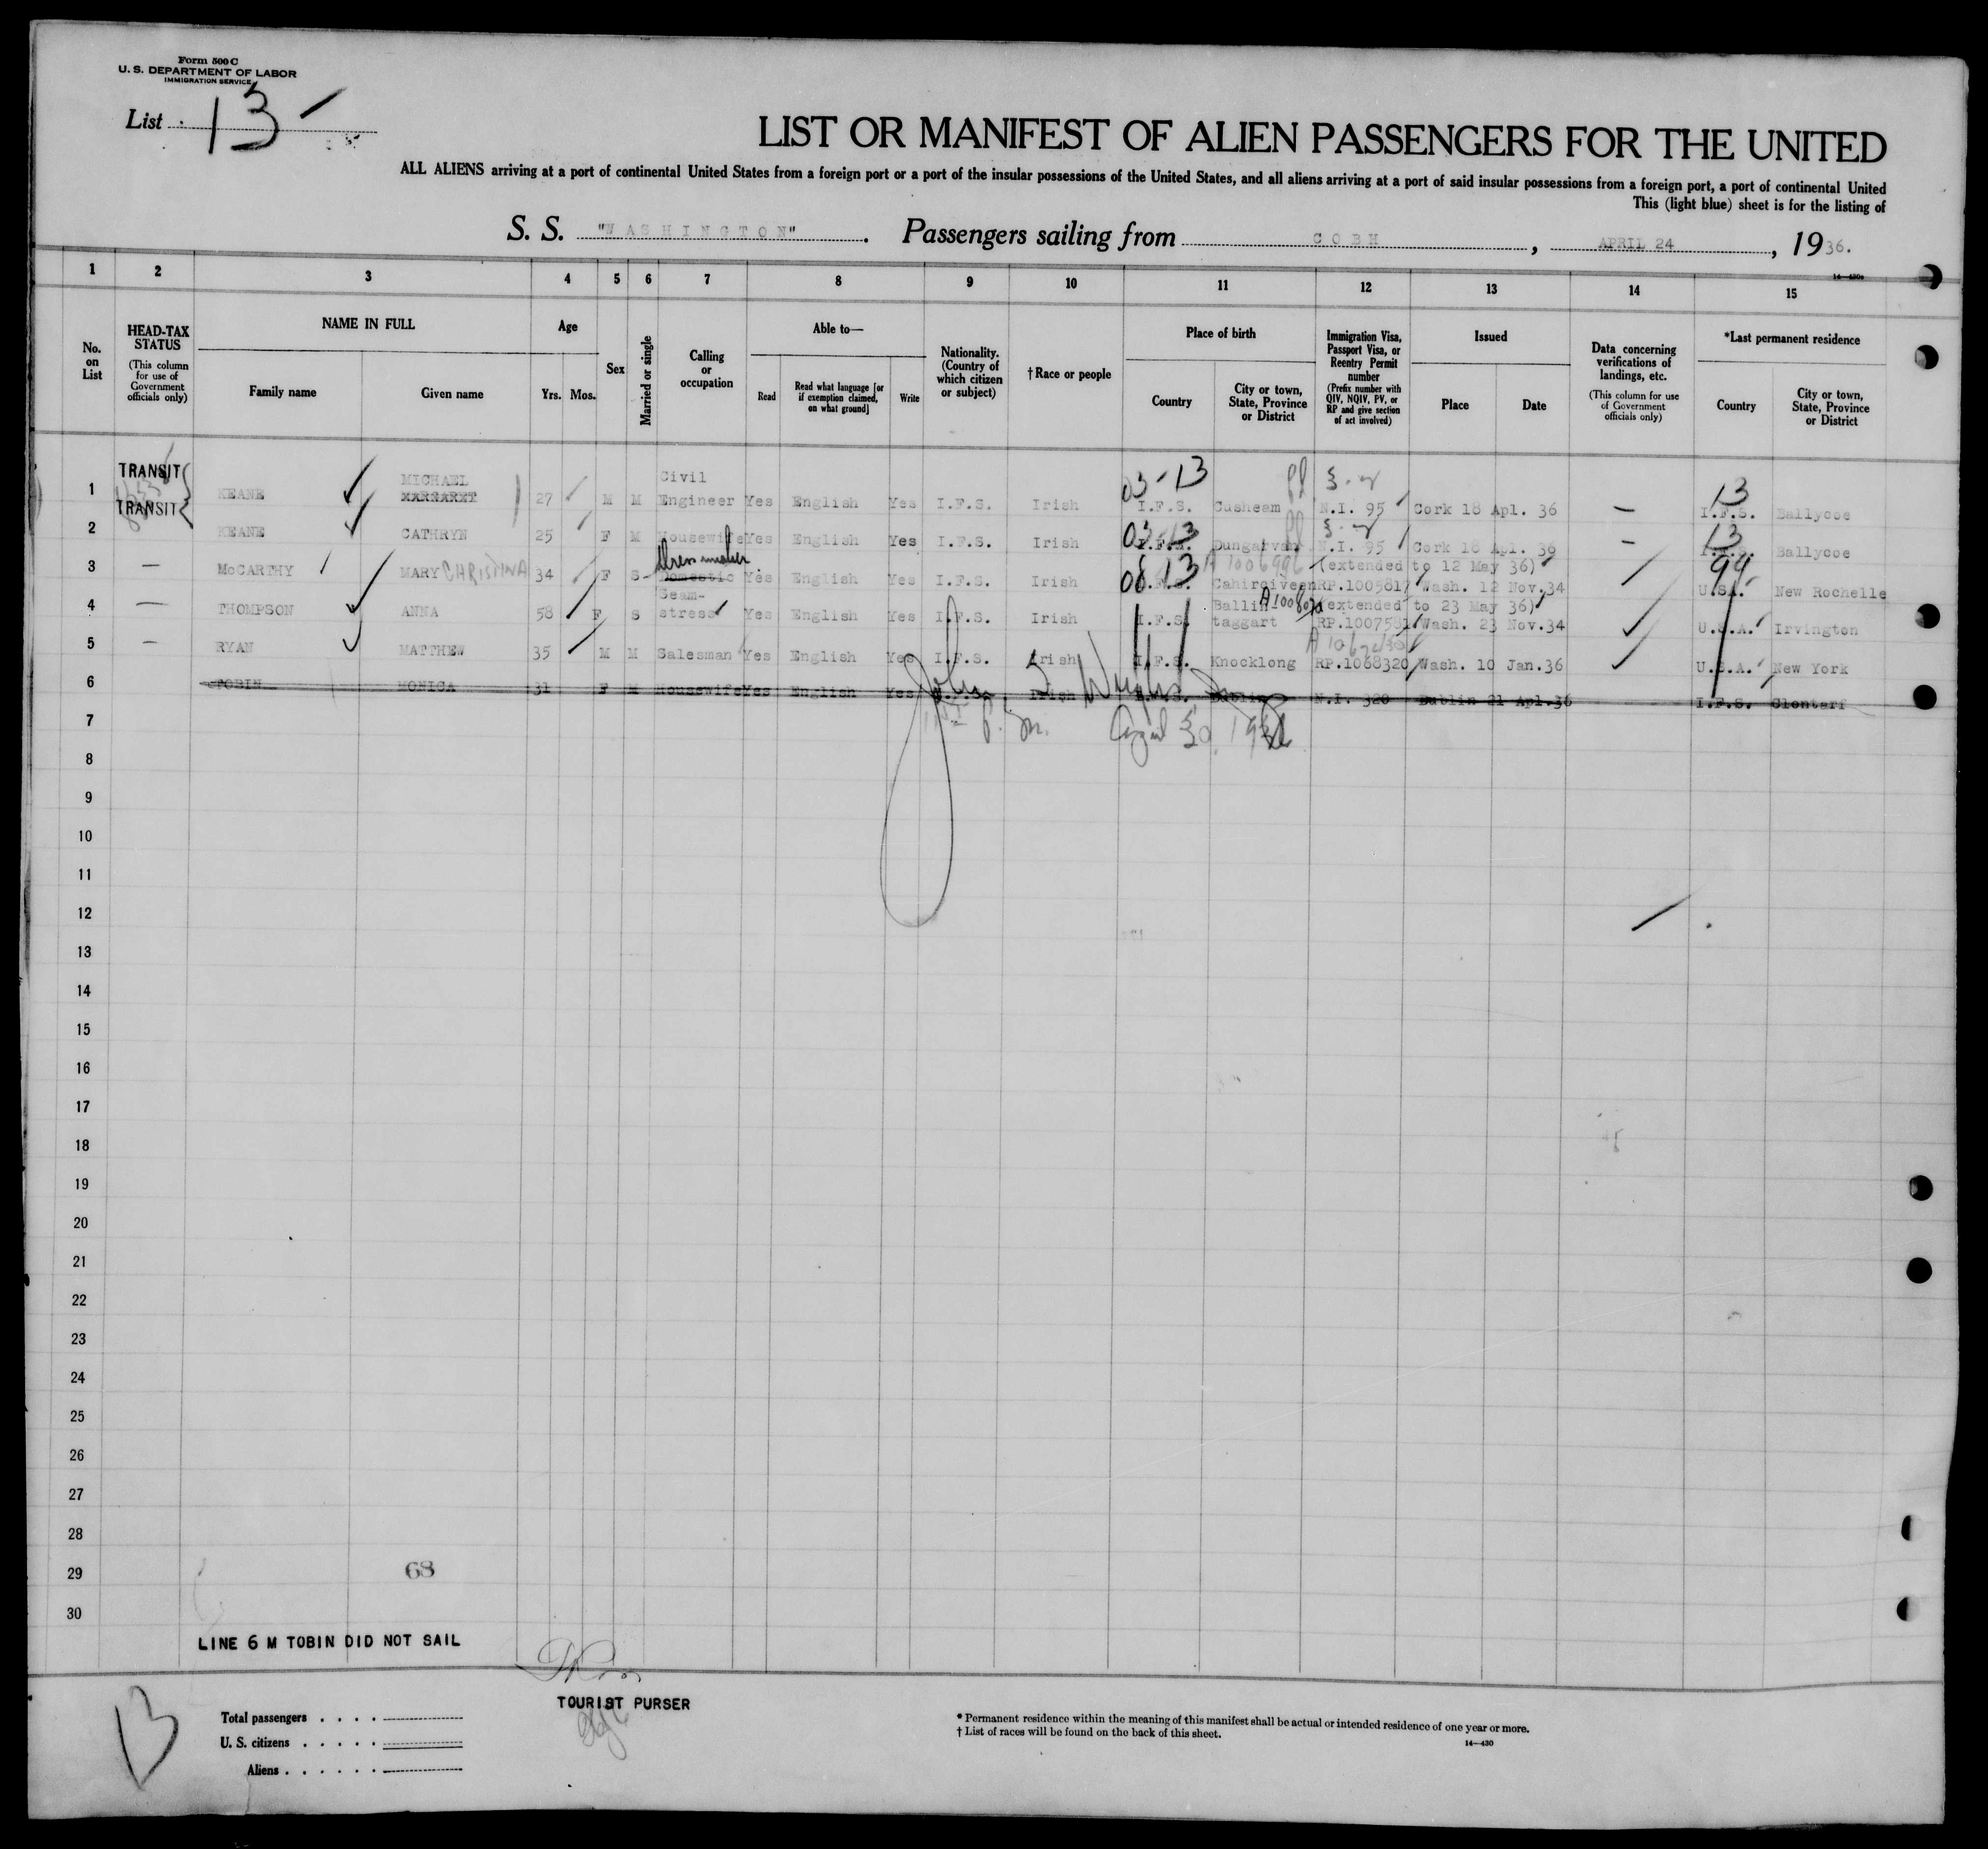 Form 500 C
U. S. DEPARTMENT OF LABOR
IMMIGRATION SERVICE
List 13
LIST OR MANIFEST OF ALIEN PASSENGERS FOR THE UNITED
ALL ALIENS arriving at a port of continental United States from a foreign port or a port of the insular possessions of the United States, and all aliens arriving at a port of said insular possessions from a foreign port, a port of continental United
This (light blue) sheet is for the listing of
S. S. "WASHINGTON". Passengers sailing from COBH, APRIL 24, 1936.
14—430a
1 2 3 4 5 6 7 8 9 10 11 12 13 14 15
No. on List
HEAD-TAX STATUS (This column for use of Government officials only)
NAME IN FULL
Family name Given name
Age
Yrs. Mos.
Sex
Married or single
Calling or occupation
Able to—
Read Read what language [or if exemption claimed, on what ground] Write
Nationality. (Country of which citizen or subject)
†Race or people
Place of birth
Country City or town, State, Province or District
Immigration Visa, Passport Visa, or Reentry Permit number (Prefix number with QIV, NQIV, PV, or RP and give section of act involved)
Issued
Place Date
Data concerning verifications of landings, etc. (This column for use of Government officials only)
*Last permanent residence
Country City or town, State, Province or District
TRANSIT MICHAEL Civil 03-13 13
1 KEANE MARGARET 27 M M Engineer Yes English Yes I.F.S. Irish I.F.S. Cusheam N.I. 95 Cork 18 Apl. 36 — I.F.S. Ballycoe
TRANSIT 03-13 13
2 KEANE CATHRYN 25 F M Housewife Yes English Yes I.F.S. Irish I.F.S. Dungarvan N.I. 95 Cork 18 Apl. 36 — I.F.S. Ballycoe
Dressmaker 08 13 A1006996 (extended to 12 May 36) 99
3 — McCARTHY MARY CHRISTINA 34 F S Domestic Yes English Yes I.F.S. Irish I.F.S. Cahirciveen RP.1005817 Wash. 12 Nov.34 U.S.A. New Rochelle
Seam- Ballin (extended to 23 May 36)
4 — THOMPSON ANNA 58 F S stress Yes English Yes I.F.S. Irish I.F.S. taggart RP.1007581 Wash. 23 Nov.34 U.S.A. Irvington
5 — RYAN MATTHEW 35 M M Salesman Yes English Yes I.F.S. Irish I.F.S. Knocklong RP.1068320 Wash. 10 Jan.36 U.S.A. New York
6 TOBIN MONICA 31 F M Housewife Yes English Yes I.F.S. Irish I.F.S. Dublin N.I. 320 Dublin 21 Apl.36 I.F.S. Clontarf
7 April 30, 1936
8
9
10
11
12
13
14
15
16
17
18
19
20
21
22
23
24
25
26
27
28
29 68
30
LINE 6 M TOBIN DID NOT SAIL
TOURIST PURSER
13
Total passengers
U. S. citizens
Aliens
* Permanent residence within the meaning of this manifest shall be actual or intended residence of one year or more.
† List of races will be found on the back of this sheet.
14—430